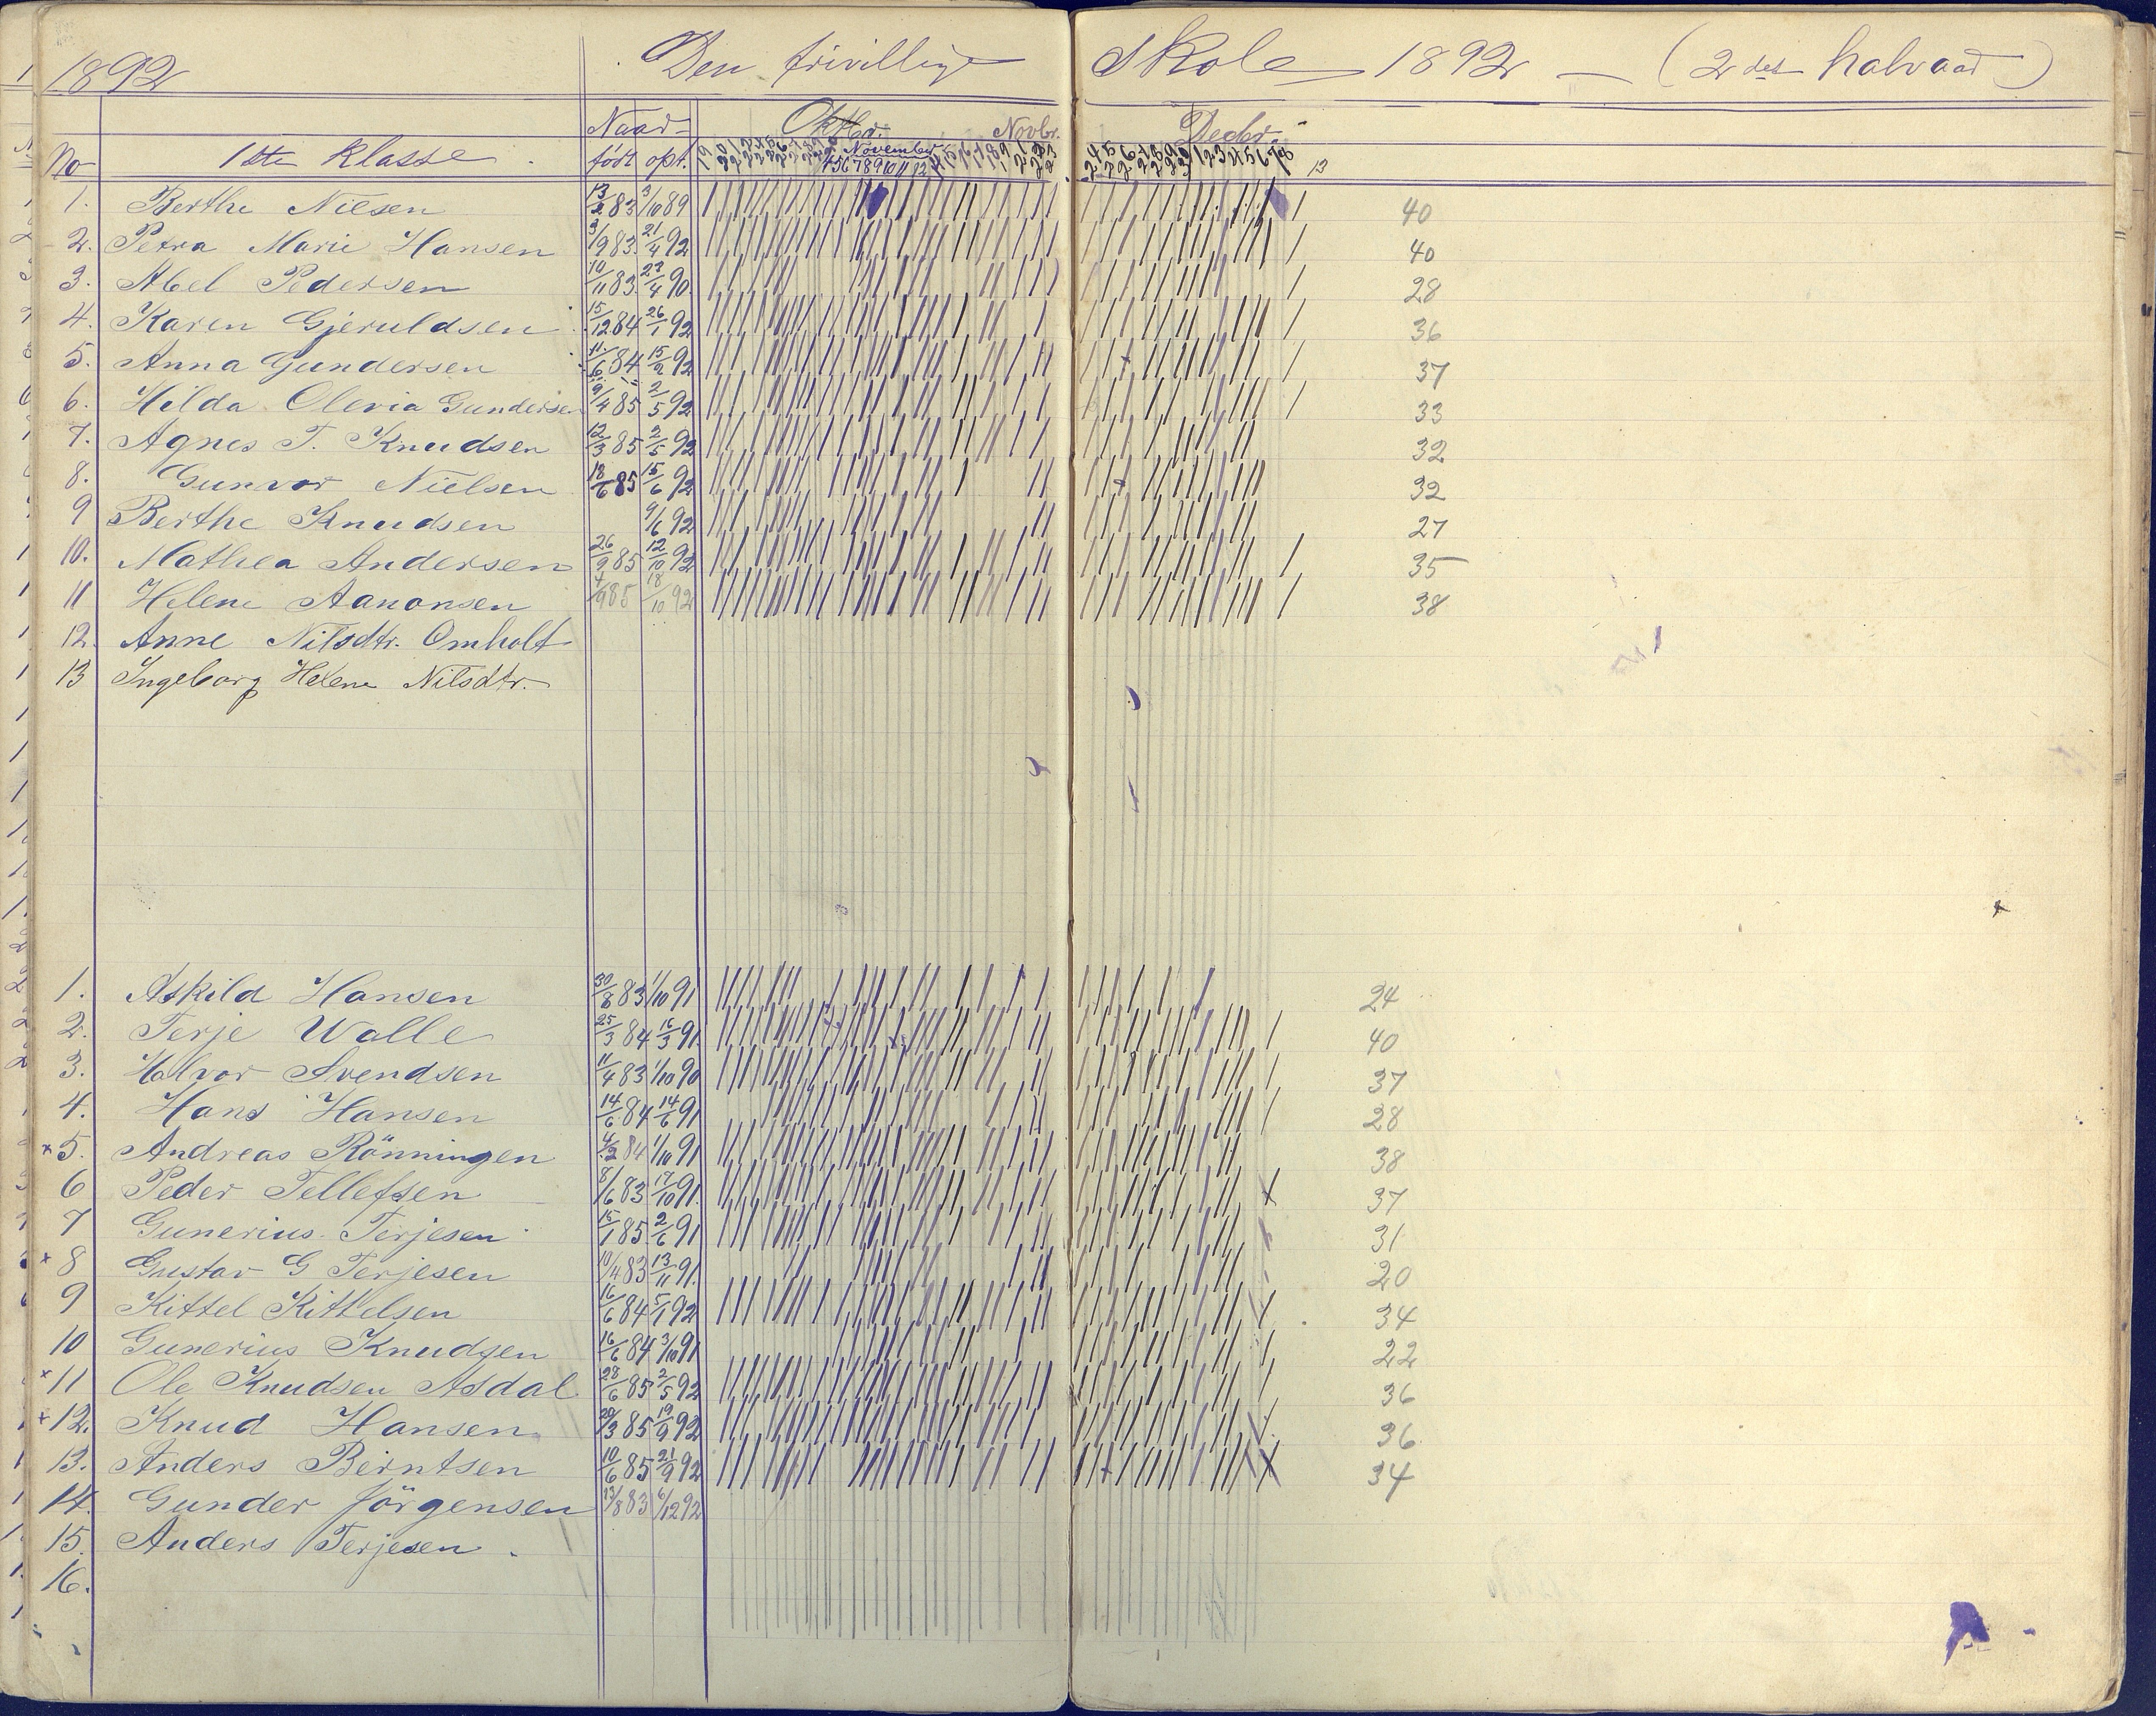 1892 Den frivillige Skole 1892 — (2det halvaar)
Naar Oktbr. Novbr. Decbr.
No 1ste Klasse. født opt. November
4 5 6 7 8 9 10 11 12 13
1. Berthe Nilsen 13/2 83 3/10 89 40
2. Petra Marie Hansen 3/9 83. 21/4 92 40
3. Abel Pedersen 10/11 83. 23/4 90. 28
4. Karen Gjeruldsen 15/12 84 26/1 92 36
5. Anna Gundersen 11/6 84 15/2 92 37
6. Hilda Olevia Gundersen 9/4 85 2/5 92 33
7. Agnes T. Knudsen 12/3 85 2/5 92 32
8. Gunvor Nielsen 18/6 85 15/6 92 32
9 Berthe Knudsen 9/6 92 27
10. Mathea Andersen 26/9 85 12/10 92 35
11 Helene Aanonsen 4/9 85 18/10 92 38
12. Anne Nilsdtr. Omholt
13 Ingeborg Helene Nilsdtr.
1. Askild Hansen 30/8 83 1/10 91 24
2. Terje Walle 25/3 84 16/3 91. 40
3. Halvor Svendsen 11/4 83 1/10 90 37
4. Hans Hansen 14/6 84 14/6 91 28
x 5. Andreas Rönningen 4/2 84 1/10 91 38
6 Peder Tellefsen 8/6 83 17/10 91. 37
7 Gunerius Terjesen 15/1 85. 2/6 91 31
x 8 Gustav G Terjesen 10/4 83 13/11 91. 20
9 Kittel Kittelsen 16/6 84 5/1 92 34
10 Gunerius Knudsen 16/6 84 3/10 91 22
x 11 Ole Knudsen Asdal 28/6 85 2/5 92 36
x 12. Knud Hansen 20/3 85 19/9 92 36
13. Anders Berntsen 10/6 85 21/9 92 34
14. Gunder Jörgensen 13/8 83 6/12 92
15. Anders Terjesen.
16.